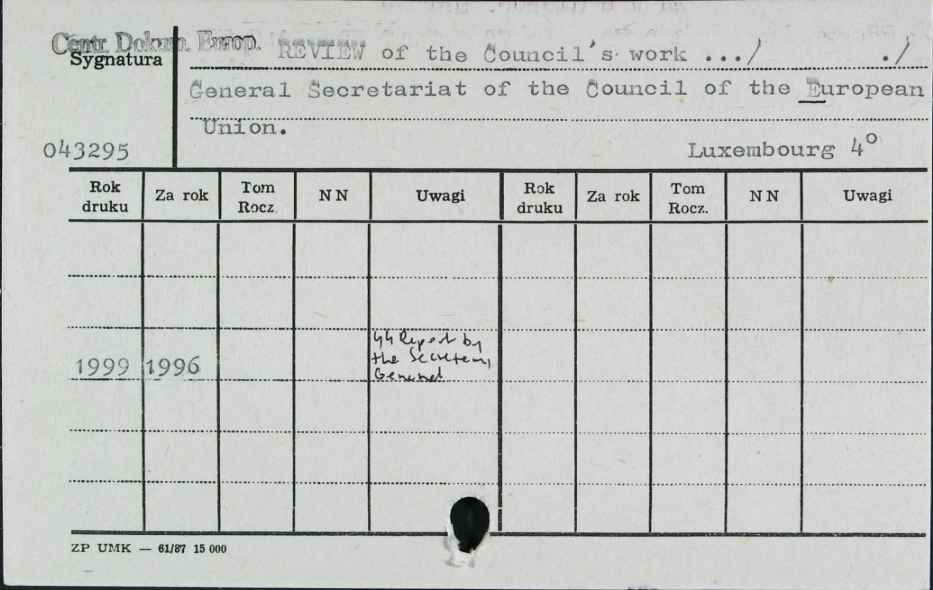 Centr. Dokum. Europ.
Sygnatura
REVIEW of the Council's work .../ ./
General Secretariat of the Council of the European
Union.
043295
Luxembourg 4°
Rok druku Za rok Tom Rocz. NN Uwagi Rok druku Za rok Tom Rocz. NN Uwagi
44 Report by
the Secretary
General
1999 1996
ZP UMK — 61/87 15 000